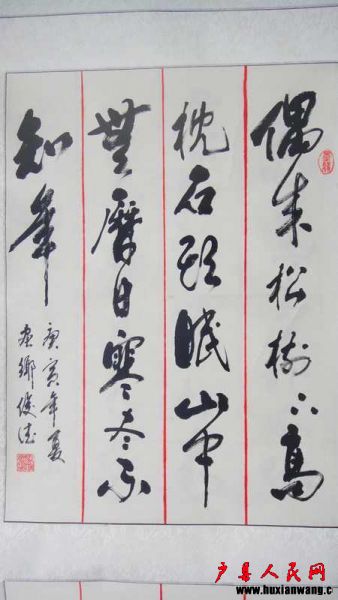 偶来松樹下高
枕石頭眠山中
無曆日寒尽不
知年
庚寅年夏
画鄉俊
户县人民网
www.huxianwang.c